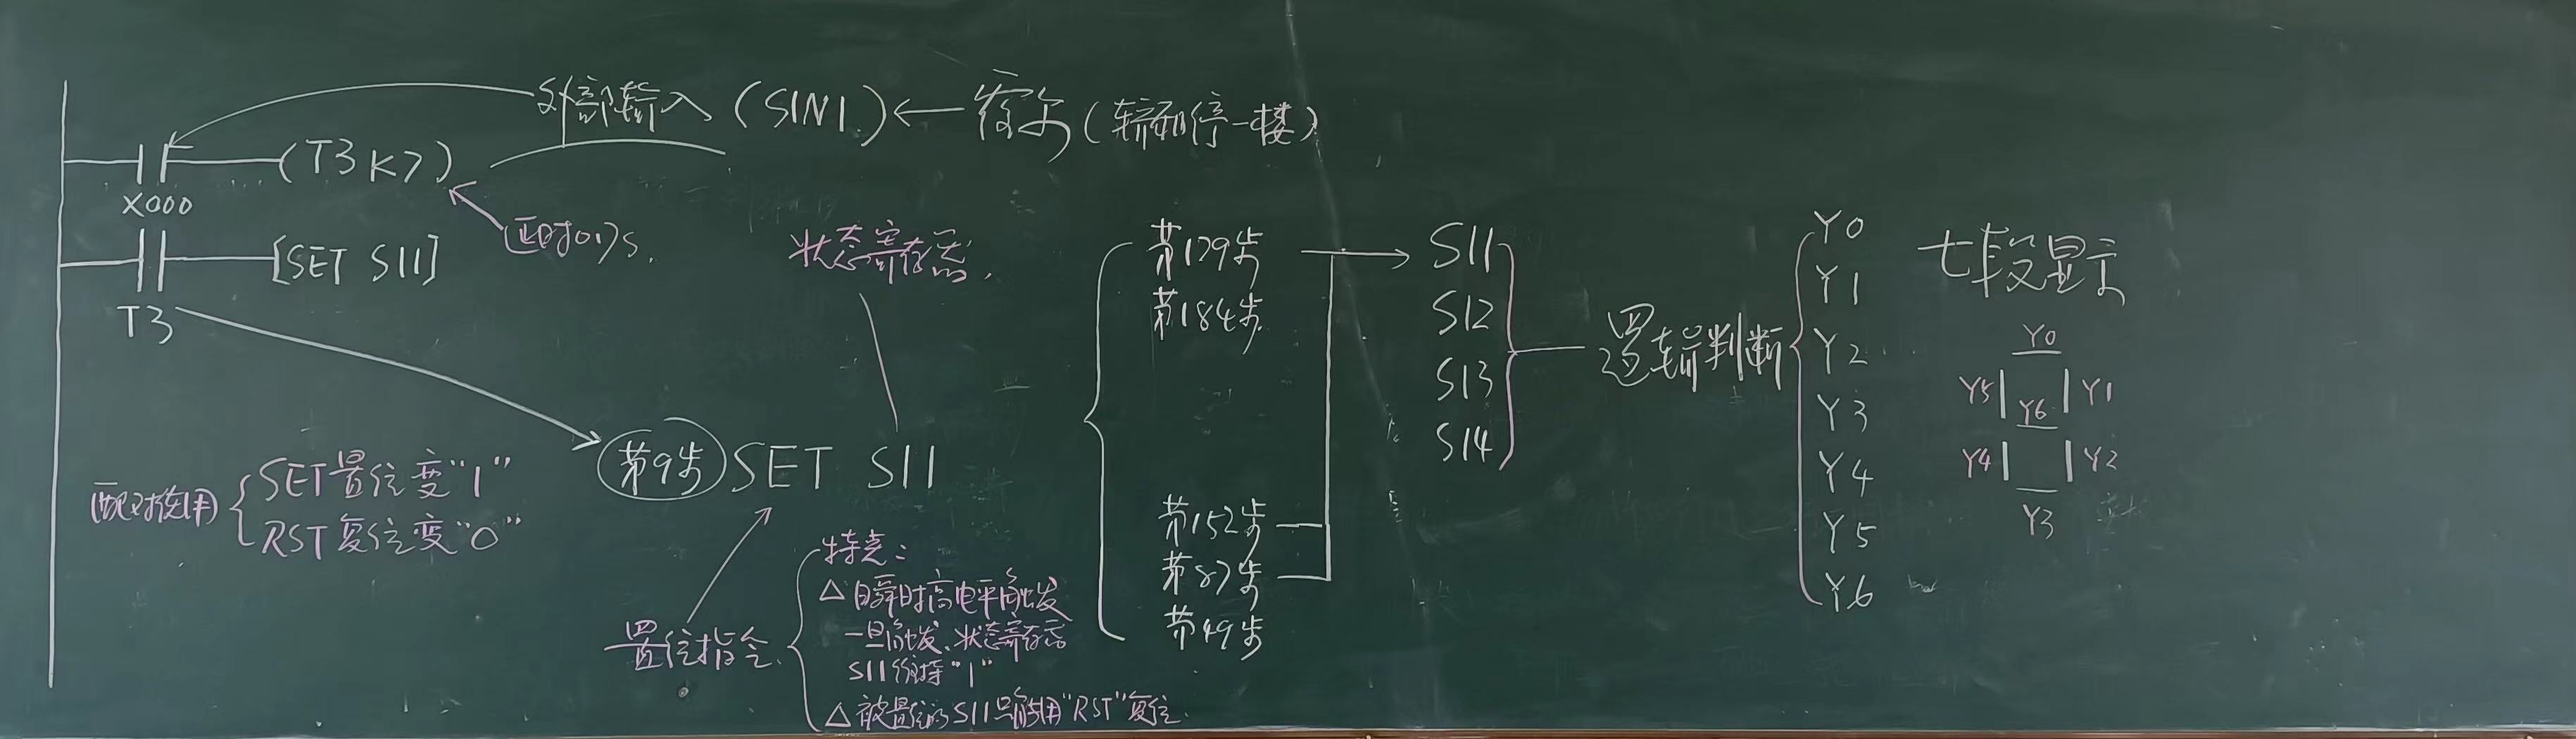 外部输入(SIN1)←霍尔(轿厢停一楼)
(T3 K7)
X000
延时0.7s.
[SET S11]
T3
状态寄存器.
第9步 SET S11
配对使用
SET置位变"1"
RST复位变"0"
置位指令.
特点:
△ 瞬时高电平触发
一旦触发、状态寄存器
S11维持"1"
△ 被置位的S11只能用"RST"复位.
第179步
第184步
第152步
第87步
第49步
S11
S12
S13
S14
逻辑判断
Y0
Y1
Y2
Y3
Y4
Y5
Y6
七段显示
Y0
Y5 Y6 Y1
Y4 Y2
Y3